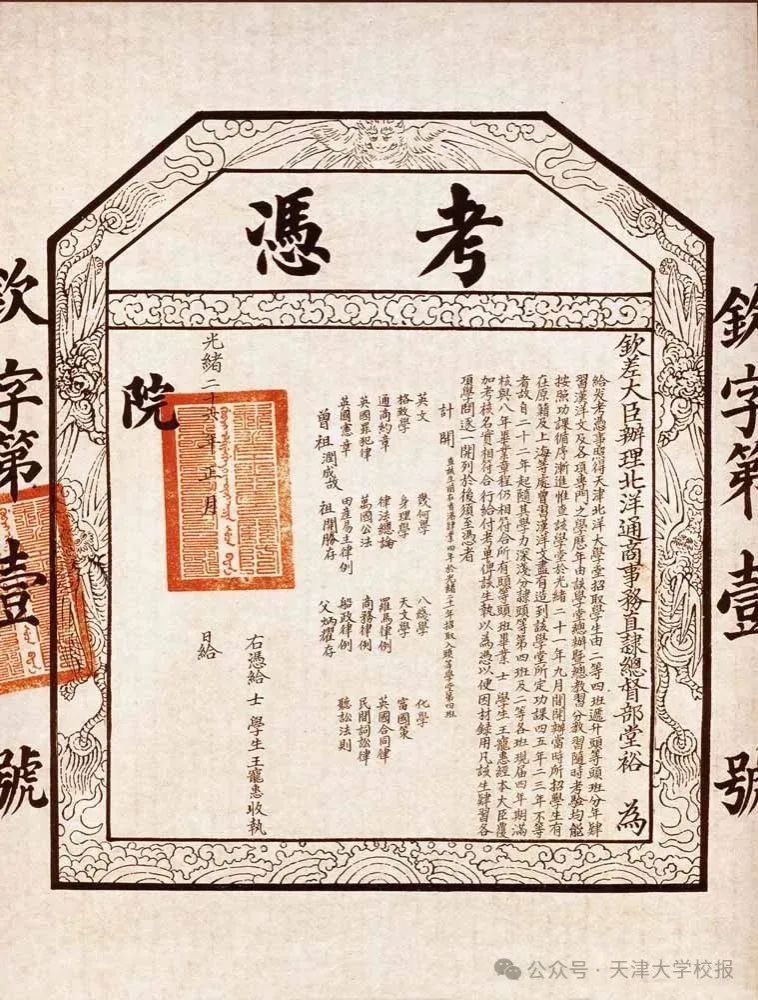 考憑
欽字第壹號
欽差大臣辦理北洋通商事務直隸總督部堂裕 為
給發考憑事照得天津北洋大學堂招取學生由二等四班遞升頭等頭班分年肄
習漢洋文及各項專門之學歷年由該學堂總辦暨總教習分教習隨時考驗均能
按照功課循序漸進惟查該學堂於光緒二十一年九月間開辦當時所招學生有
在原籍及上海等處曾習漢洋文盡有造到該學堂所定功課四五年二三年不等
者故自二十二年起隨其學力深淺分隸頭等第四班及二等各班現屆四年期滿
核與八年畢業章程仍相符合所有頭等頭班畢業士 學生王寵惠經本大臣覆
加考核名實相符合行給付考單俾該生執以為憑以便因材錄用凡該生肄習各
項學問逐一開列於後須至憑者
計開 查該生前在香港肄業四年於光緒二十一年招取入頭等學堂第四班
英文 幾何學 八綫學 化學
格致學 身理學 天文學 富國策
通商約章 律法總論 羅馬律例 英國合同律
英國罪犯律 萬國公法 商務律例 民間詞訟律
英國憲章 田產易主律例 船政律例 聽訟法則
曾祖潤成故 祖開勝存 父炳耀存
右憑給 士 學生王寵惠收執
光緒二十六年正月 日給
院
欽字第壹號
公众号·天津大学校报